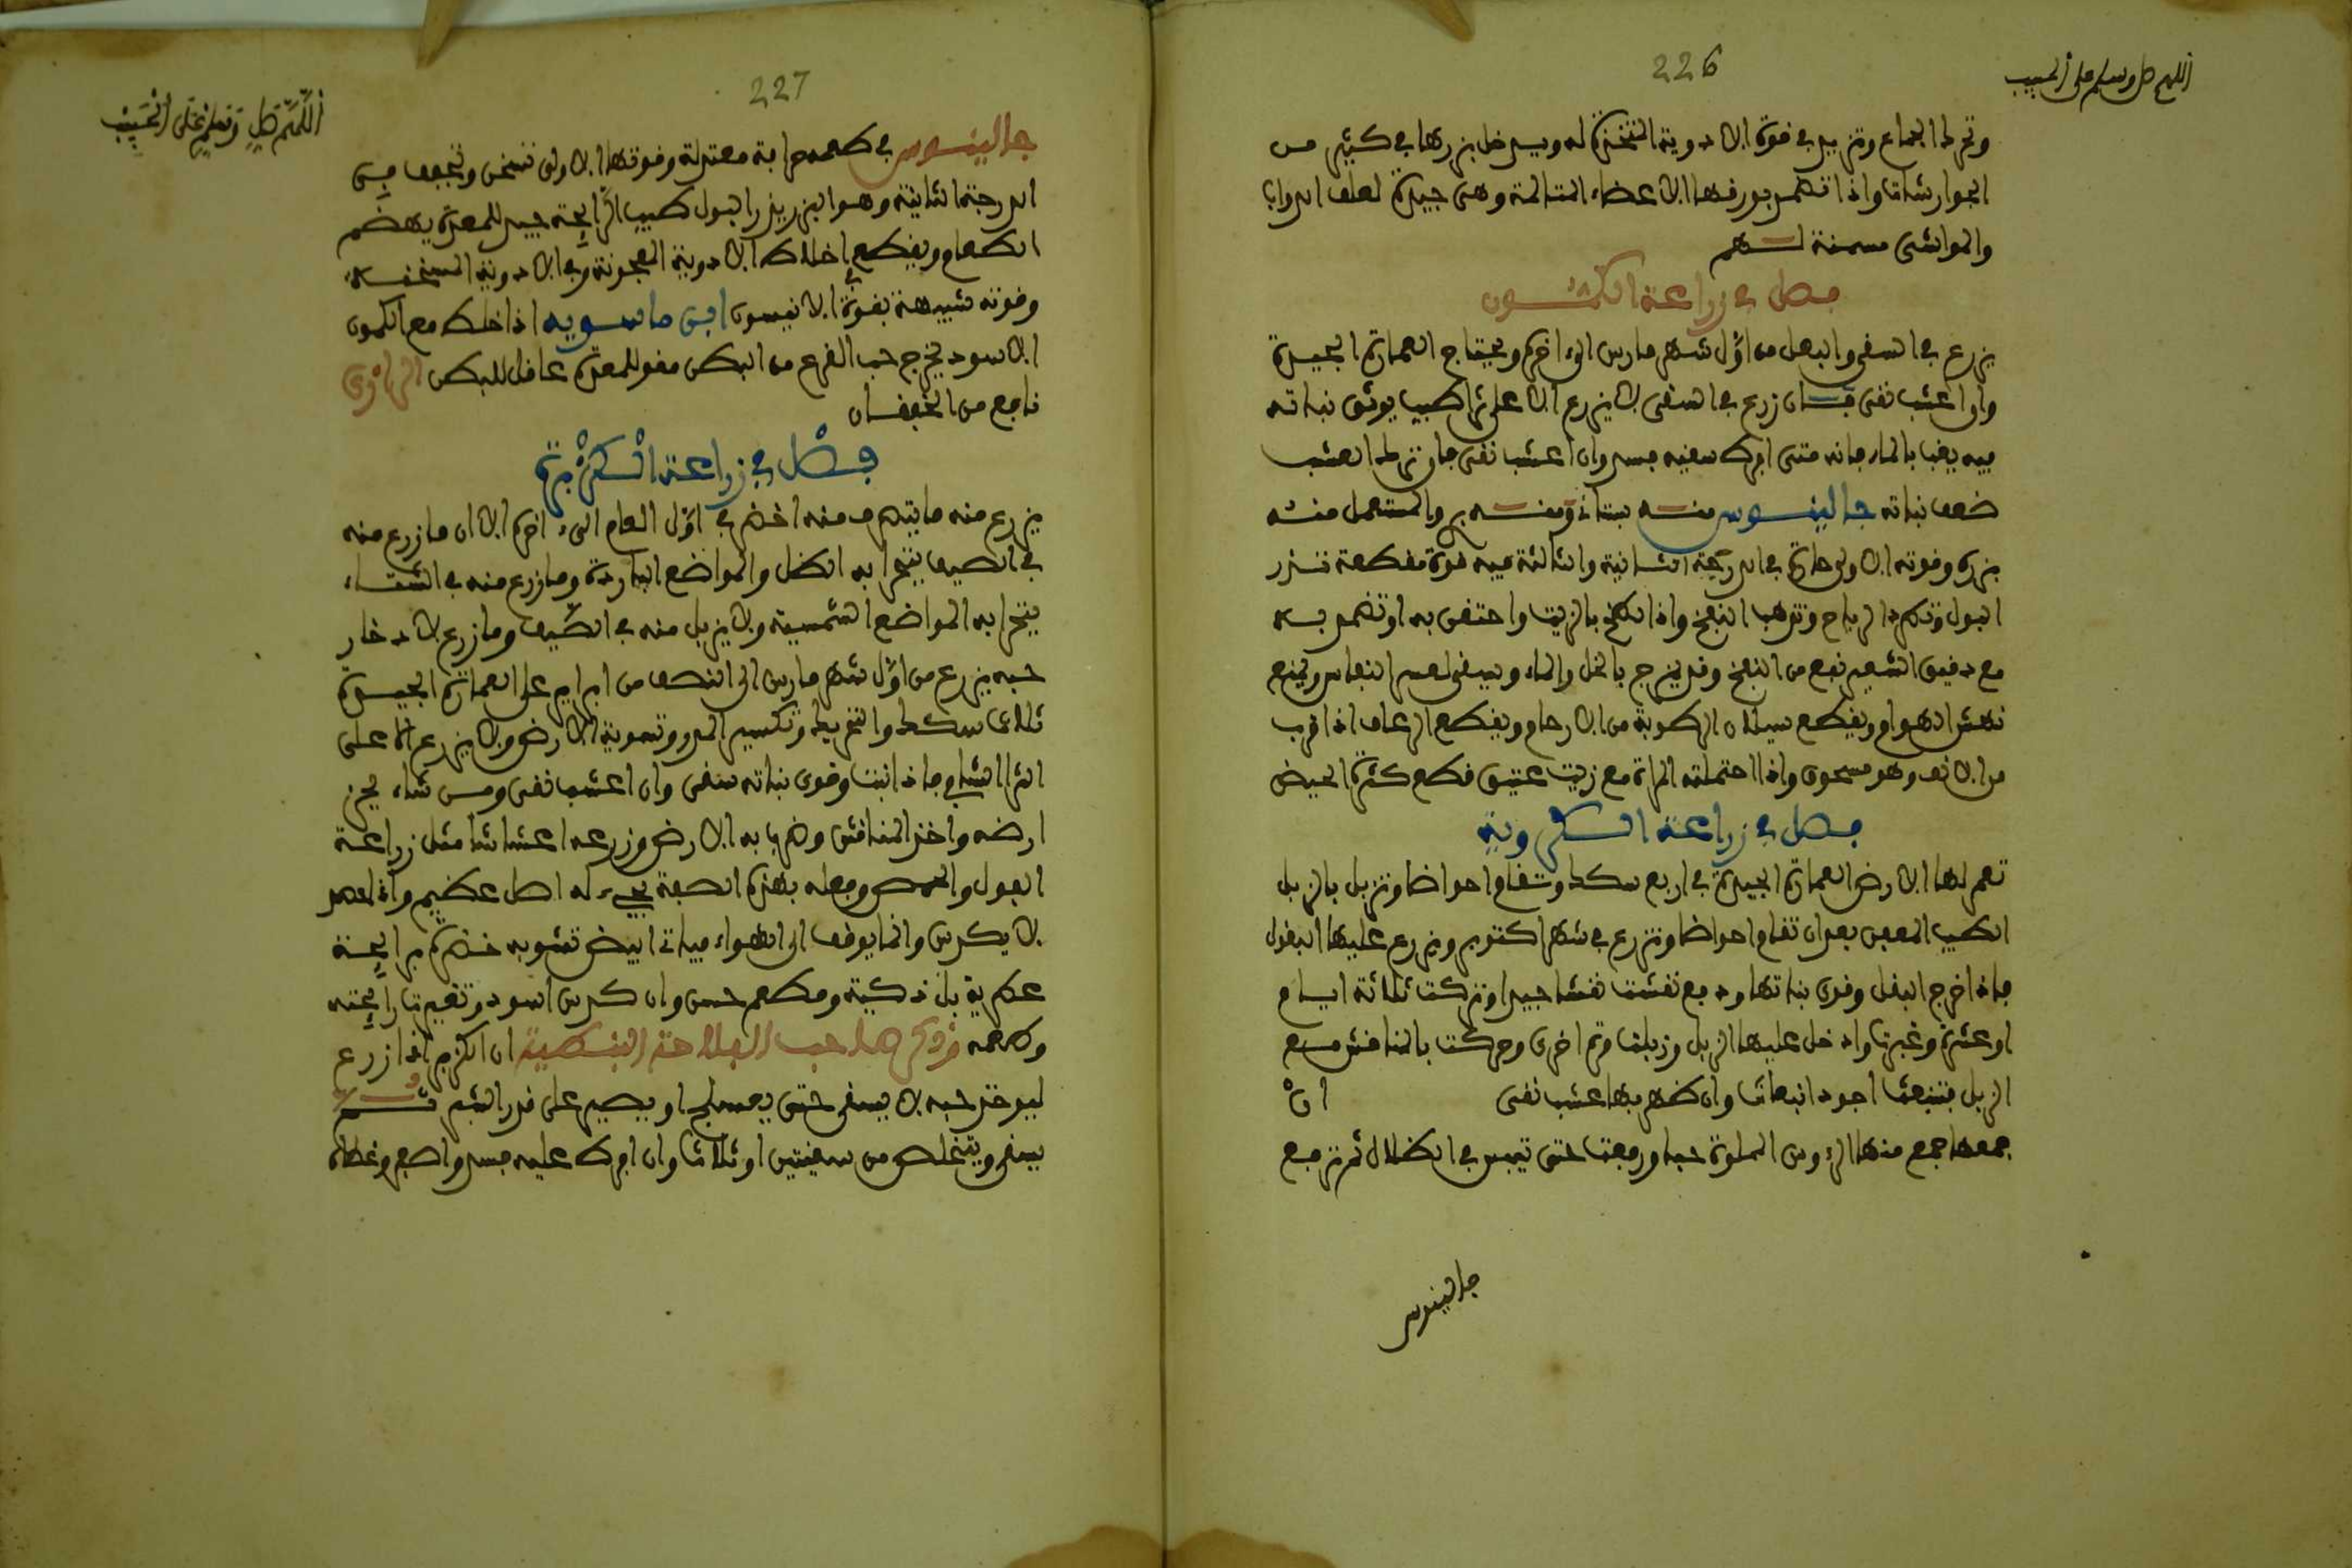 226
اللهم صل وسلم على الحبيب
وتحرك الجماع وتزيد في قوة الادوية المتخذة له ويدخل بزرها في كثير من
الجوارشات واذا تضمد بورقها الاعضاء المتالمة وهي جيدة لعلف الدواب
والمواشي مسمنة لهم
فصل في زراعة الكمون
يزرع في السقي والبعل من اول شهر مارس الى اخره ويحتاج العمارة الجيدة
وان اعشب نقى فان زرع في السقي لا يزرع الا على ثرا طيب يوثق نباته
فيه يغبا بالماء فانه متى افرط سقيه فسد وان اعشب نقى فان ترك العشب
ضعف نباته جالينوس منه بستاني ومنه بري والمستعمل منه
بزره وقوته الاولى حارة في الدرجة الثانية والثالثة فيه قوة مقطعة تدر
البول وتطرد الرياح وتذهب النفخ واذا طبخ بالزيت واحتقن به او تضمد به
مع دقيق الشعير نفع من النفخ وقد يمزج بالخل والماء ويسقى لعسر النفاس وينفع
نهش الهوام ويقطع سيلان الرطوبة من الارحام ويقطع الرعاف اذا قرب
من الانف وهو مسحوق واذا احتملته المراة مع زيت عتيق قطع كثرة الحيض
فصل في زراعة الكروية
تعمر لها الارض العمارة الجيدة في اربع سكك وتقام احواضا وتزبل بالزبل
الطيب المعفن بعد ان تقام احواضا وتزرع في شهر اكتوبر ويزرع عليها البقول
فاذا خرج البقل وقوى نباتها ودفع نقشت نقشا جيدا وتركت ثلاثة ايام
او عشرة وغبرت وادخل عليها الزبل وزبلت مرة اخرى وحركت بالمناقش مع
الزبل فتنبعث اجود انبعاث وان ظهر بها عشب نقى ان
جمعها جمع منها الرءوس المملوة حبا ورفعت حتى تيبس في الظلال ثم ترفع
جالينوس
227
اللهم صل وسلم على الحبيب
جالينوس في طعمه حرافة معتدلة وقوتها الاولى تسخن وتجفف في
الدرجة الثانية وهو البزر يدر البول طيب الرايحة جيد للمعدة يهضم
الطعام ويقطع في اخلاط الادوية المعجونة وفي الادوية المسخنة
وقوته شبيهة بقوة الانيسون ابن ماسويه اذا خلط مع الكمون
الاسود يخرج حب القرع من البطن مقو للمعدة عاقل للبطن الرازي
نافع من الخفقان
فصل في زراعة الكزبرة
يزرع منه ما يتصرف منه اخضر في اول العام الى اخره الا ان ما زرع منه
في الصيف يتحرا به الظل والمواضع الباردة وما زرع منه في الشتاء
يتحرا به المواضع الشمسية ولا يزبل منه في الصيف وما زرع لادخار
حبه يزرع من اول شهر مارس الى النصف من ابريل على العمارة الجيدة
ثلاث سكك والتزبيل وتكسير المدر وتسوية الارض ولا يزرع الا على
الثرا الشافي فاذا نبت وقوى نباته سقى وان اعشب نقى ومن شاء يحرث
ارضه واخذ المناقش وضرب به الارض وزرعه اعشاشا مثل زراعة
الفول والحمص وفعله بهذه الصفة يجيء له اصل عظيم واذا حصد
لا يكدس وانما يوقف الى الهواء فياتي ابيض تشوبه خضرة برايحة
عطرية بل ذكية ومطعم حسن وان كدس اسود وتغيرت رايحته
وطعمه وذكر صاحب الفلاحة النبطية ان الكزبر اذا زرع
ليوخذ حبه لا يسقى حتى يعسلج او يصير على قدر الشبر ثم
يسقى ويتخلص من سقيتين او ثلاث وان افرط عليه فسد واصفر وغطاه